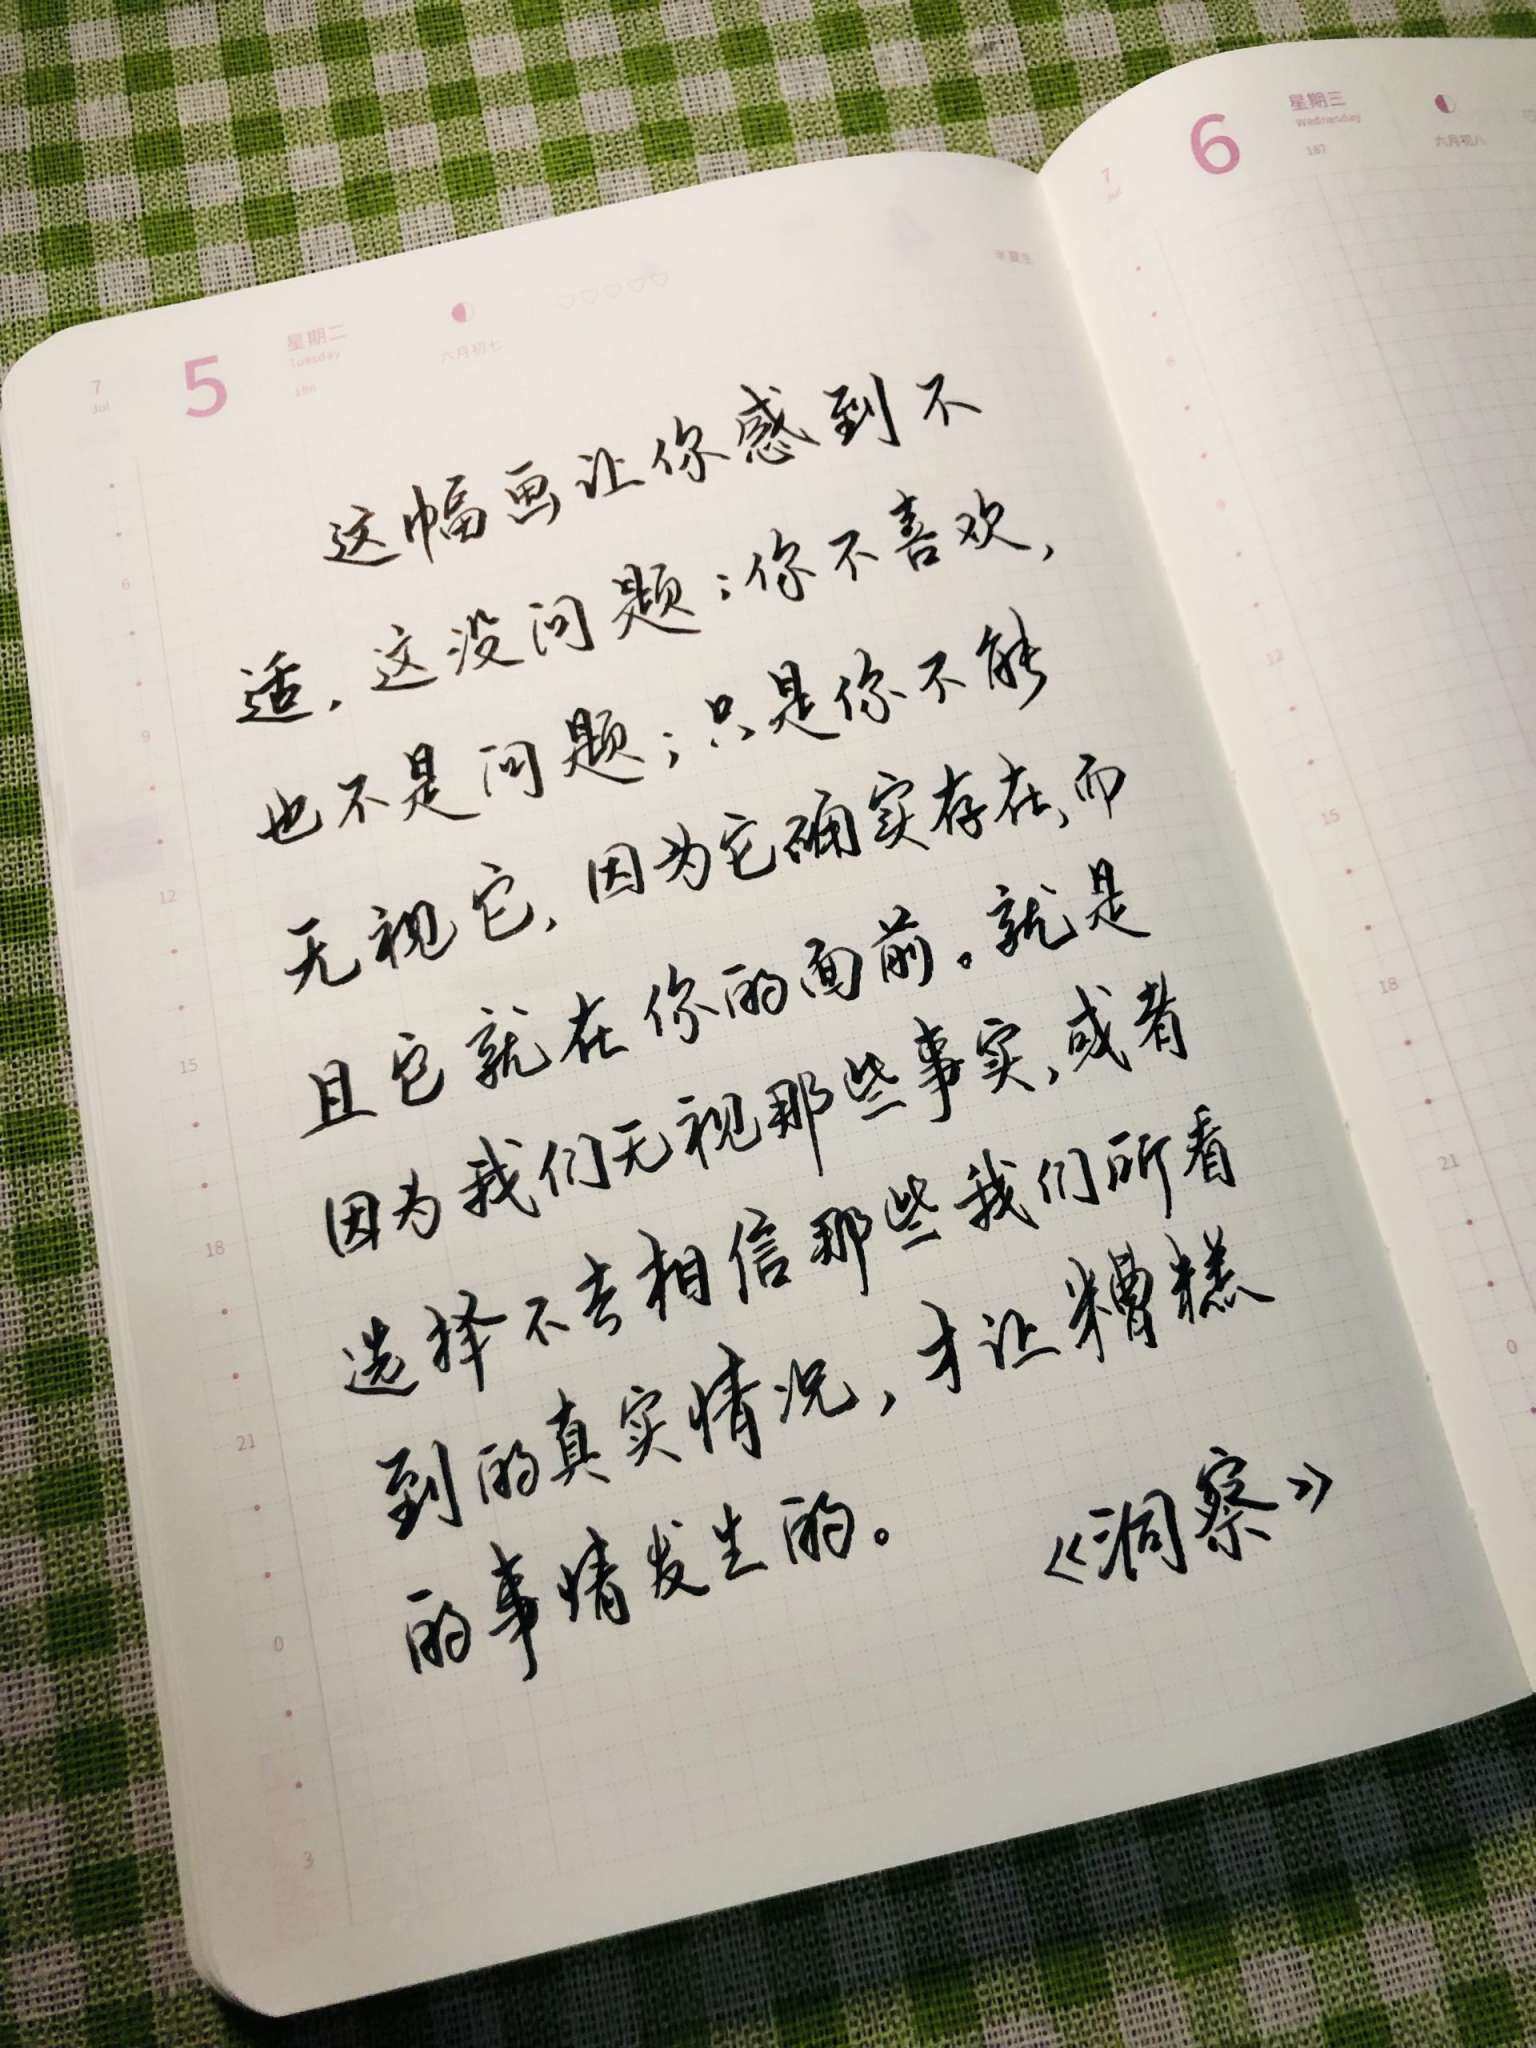 7
Jul
5
星期二
Tuesday
186
六月初七
半夏生
这幅画让你感到不
适,这没问题;你不喜欢,
也不是问题;只是你不能
无视它,因为它确实存在,而
且它就在你的面前。就是
因为我们无视那些事实,或者
选择不去相信那些我们所看
到的真实情况,才让糟糕
的事情发生的。 《洞察》
6
9
12
15
18
21
0
3
7
Jul
6
星期三
Wednesday
187
六月初八
12
15
18
21
0